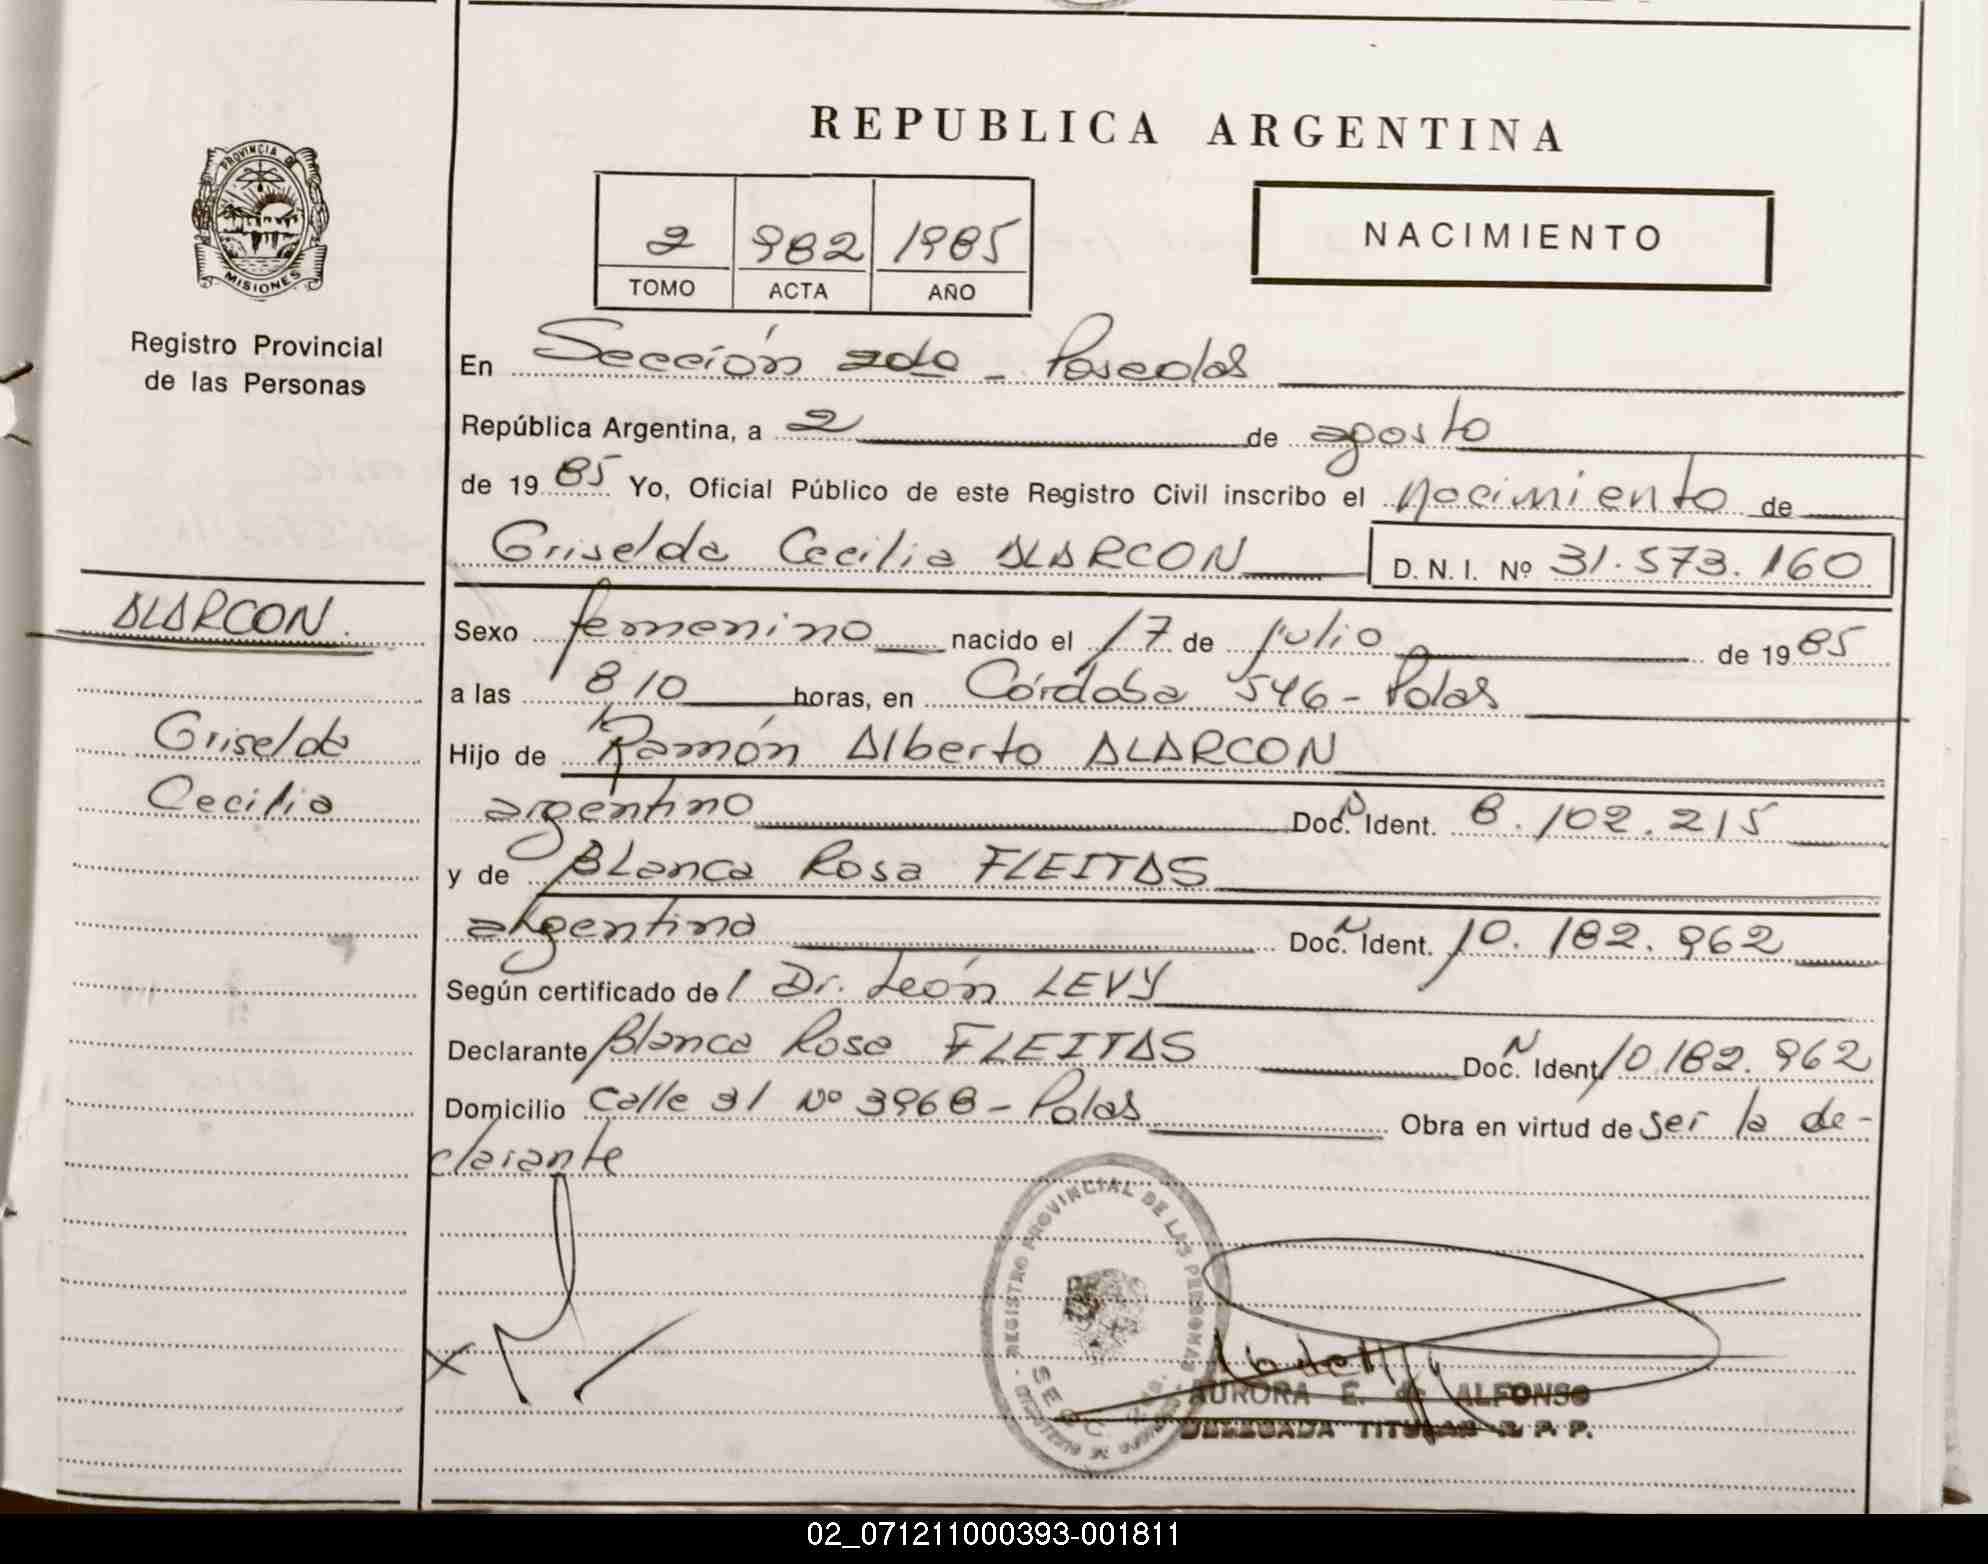 REPUBLICA ARGENTINA
PROVINCIA DE
MISIONES
Registro Provincial
de las Personas
2 982 1985
TOMO ACTA AÑO
NACIMIENTO
En Sección 2da - Posadas
República Argentina, a 2 de agosto
de 1985 Yo, Oficial Público de este Registro Civil inscribo el nacimiento de
Griselda Cecilia ALARCON D. N. I. Nº 31.573.160
ALARCON.
Griselda
Cecilia
Sexo femenino nacido el 17 de julio de 1985
a las 8 10 horas, en Córdoba 546 - Pdas
Hijo de Ramón Alberto ALARCON
argentino Doc. Ident. 8.102.215
y de Blanca Rosa FLEITAS
argentina Doc. Ident. 10.182.962
Según certificado del Dr. León LEVY
Declarante Blanca Rosa FLEITAS Doc. Ident. 10.182.962
Domicilio Calle 31 Nº 3968 - Pdas Obra en virtud de ser la de-
clarante
REGISTRO PROVINCIAL DE LAS PERSONAS
AURORA E. de ALFONSO
DELEGADA TITULAR R. P. P.
02_071211000393-001811